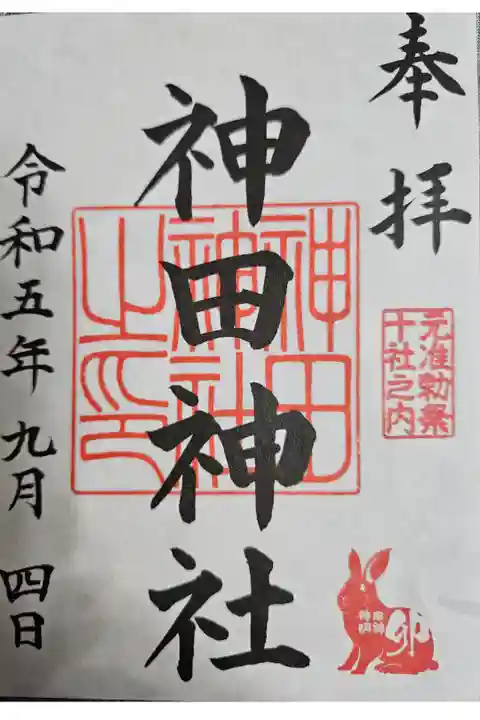 奉拝
元准勅祭
十社之内
卯
神田神社
神田
神社
之印
令和五年九月四日